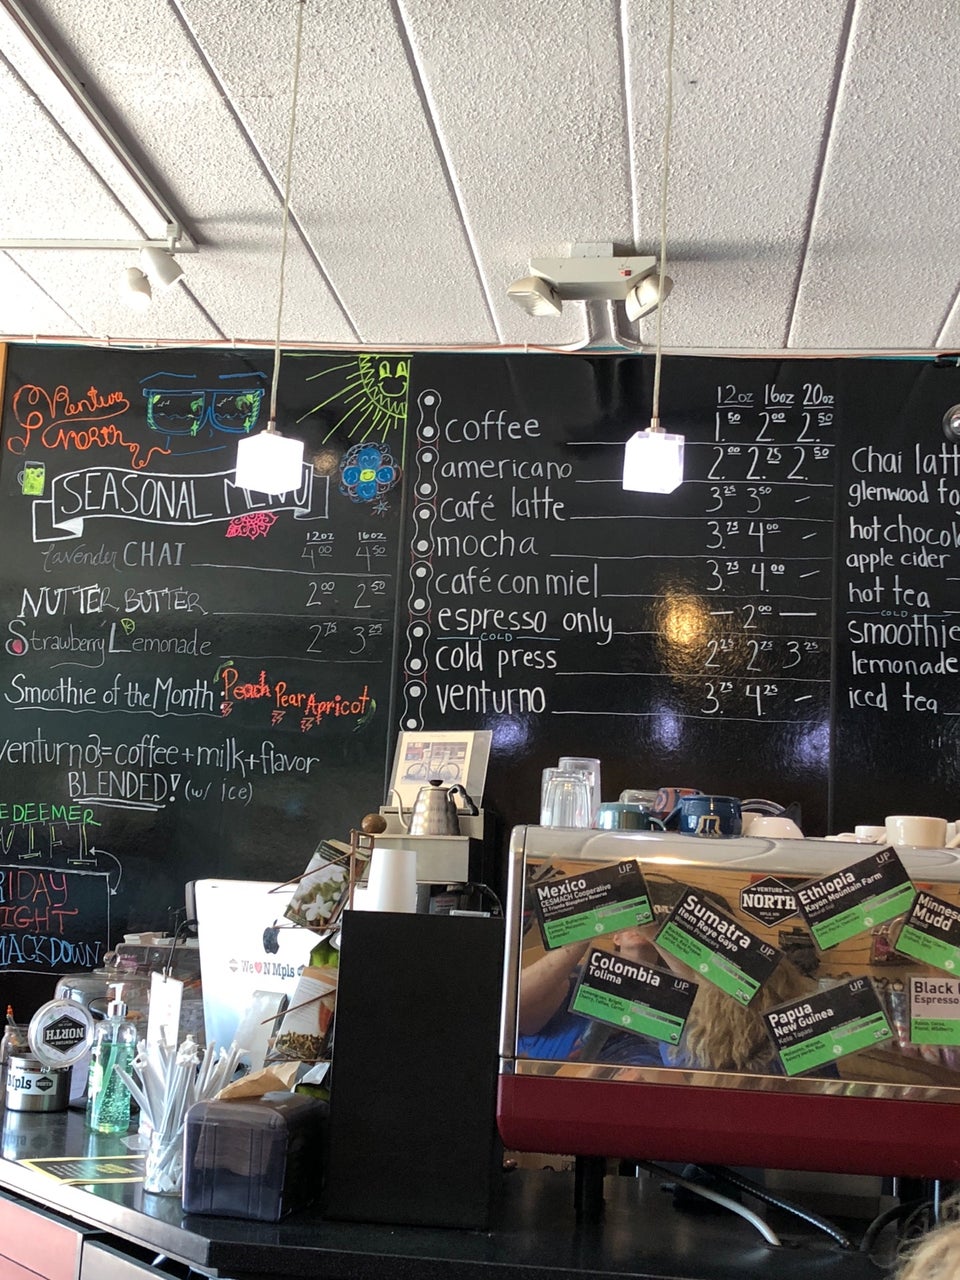 Venture
North
SEASONAL MENU
12oz 16oz
lavender CHAI 4.00 4.50
NUTTER BUTTER 2.00 2.50
Strawberry Lemonade 2.75 3.25
Smoothie of the Month: Peach Pear Apricot
venturno=coffee+milk+flavor
BLENDED! (w/ ice)
EDEEMER
RIDAY
IGHT
MACKDOWN
12oz 16oz 20oz
coffee 1.50 2.00 2.50
americano 2.00 2.25 2.50
café latte 3.25 3.50 -
mocha 3.75 4.00 -
café con miel 3.75 4.00 -
espresso only - 2.00 -
COLD
cold press 2.25 2.75 3.25
venturno 3.75 4.25 -
chai latt
glenwood fo
hot chocol
apple cider
hot tea
COLD
smoothie
lemonade
iced tea
We ♥ N Mpls
NORTH
Mpls
Mexico
CESMACH Cooperative
El Triunfo Biosphere Reserve
UP
Sumatra
Item Reye Gayo
UP
VENTURE
NORTH
Ethiopia
Kayon Mountain Farm
UP
Minnes
Mudd
Colombia
Tolima
UP
Papua
New Guinea
UP
Black
Espresso